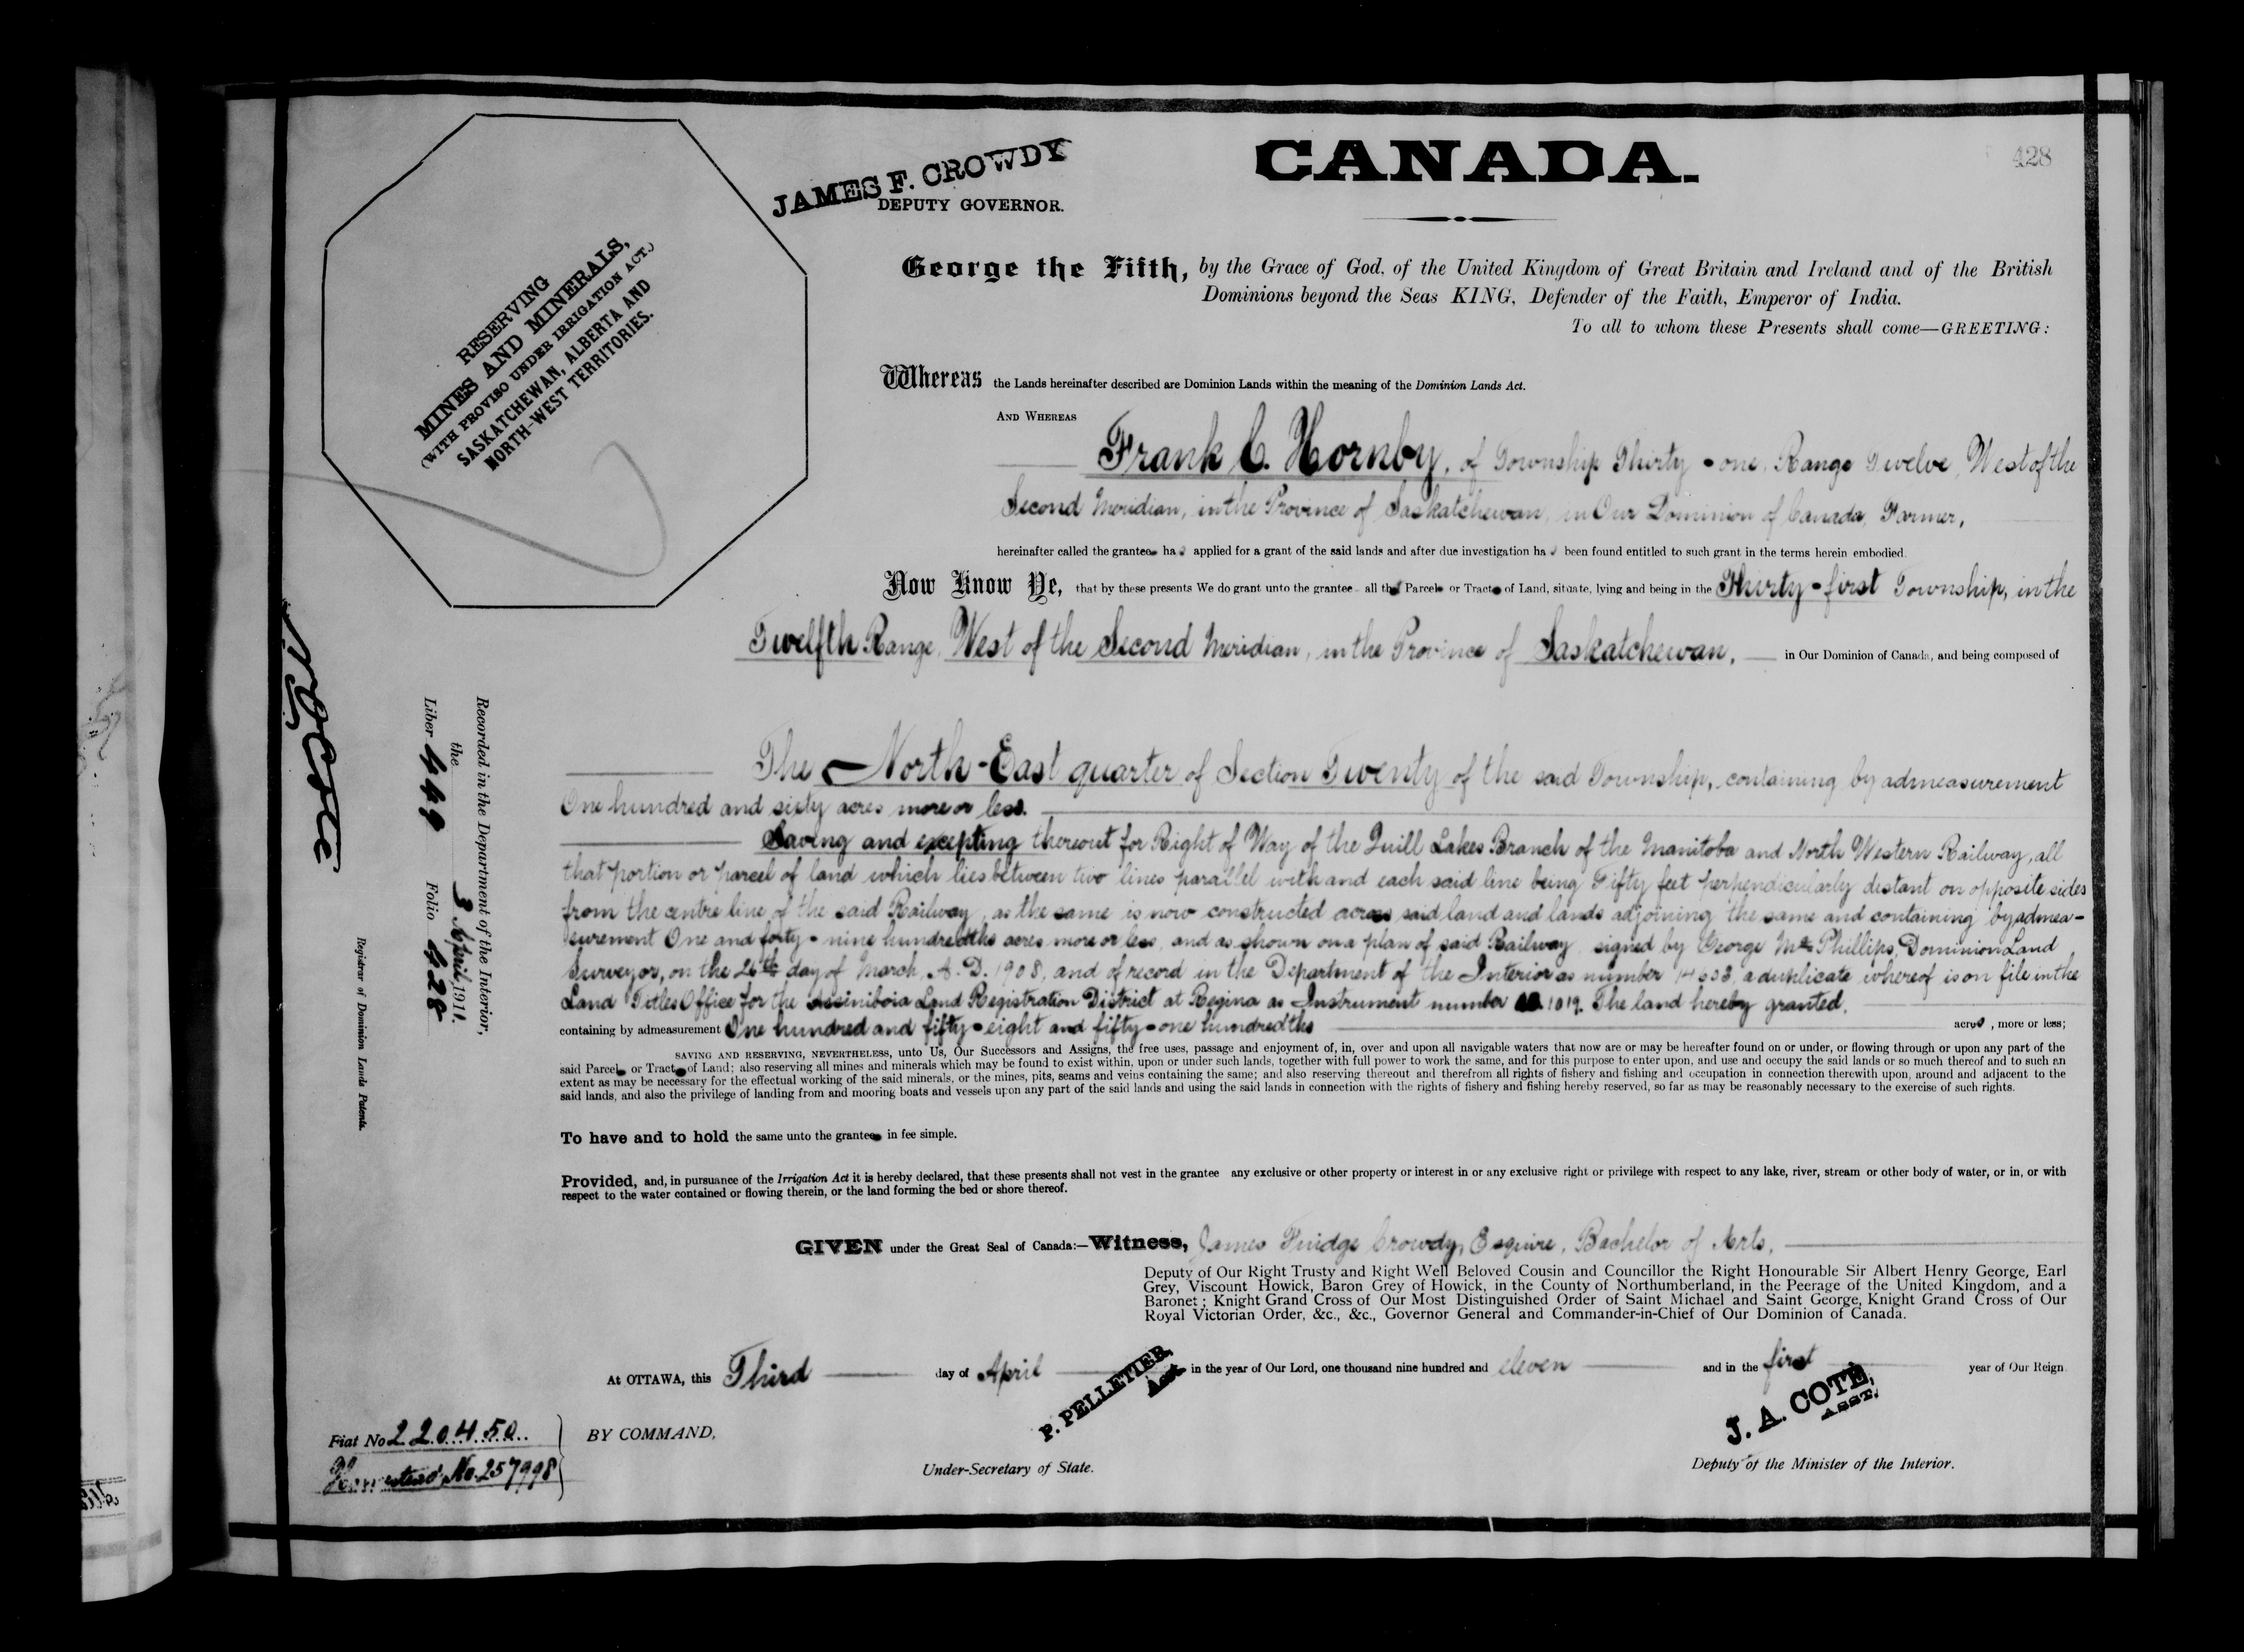 428
CANADA.
JAMES F. CROWDY
DEPUTY GOVERNOR.
RESERVING
MINES AND MINERALS,
(WITH PROVISO UNDER IRRIGATION ACT.)
SASKATCHEWAN, ALBERTA AND
NORTH-WEST TERRITORIES.
George the Fifth, by the Grace of God, of the United Kingdom of Great Britain and Ireland and of the British
Dominions beyond the Seas KING, Defender of the Faith, Emperor of India.
To all to whom these Presents shall come—GREETING:
Whereas the Lands hereinafter described are Dominion Lands within the meaning of the Dominion Lands Act.
AND WHEREAS
Frank C. Hornby, of Township Thirty-one, Range Twelve, West of the
Second Meridian, in the Province of Saskatchewan, in Our Dominion of Canada, Farmer,
hereinafter called the grantee has applied for a grant of the said lands and after due investigation has been found entitled to such grant in the terms herein embodied.
Now Know Ye, that by these presents We do grant unto the grantee all that Parcel or Tract of Land, situate, lying and being in the Thirty-first Township, in the
Twelfth Range, West of the Second Meridian, in the Province of Saskatchewan, in Our Dominion of Canada, and being composed of
The North-East quarter of Section Twenty of the said Township, containing by admeasurement
One hundred and sixty acres more or less.
Saving and excepting thereout for Right of Way of the Quill Lakes Branch of the Manitoba and North Western Railway, all
that portion or parcel of land which lies between two lines parallel with and each said line being Fifty feet perpendicularly distant on opposite sides
from the centre line of the said Railway, as the same is now constructed across said land and lands adjoining the same and containing by admea-
surement One and forty-nine hundredths acres more or less, and as shown on a plan of said Railway signed by George McPhillips, Dominion Land
Surveyor, on the 26th day of March, A.D. 1908, and of record in the Department of the Interior as number a duplicate whereof is on file in the
Land Titles Office for the Assiniboia Land Registration District at Regina as Instrument number 1019. The land hereby granted,
containing by admeasurement One hundred and fifty-eight and fifty-one hundredths acres, more or less;
SAVING AND RESERVING, NEVERTHELESS, unto Us, Our Successors and Assigns, the free uses, passage and enjoyment of, in, over and upon all navigable waters that now are or may be hereafter found on or under, or flowing through or upon any part of the
said Parcel or Tract of Land; also reserving all mines and minerals which may be found to exist within, upon or under such lands, together with full power to work the same, and for this purpose to enter upon, and use and occupy the said lands or so much thereof and to such an
extent as may be necessary for the effectual working of the said minerals, or the mines, pits, seams and veins containing the same; and also reserving thereout and therefrom all rights of fishery and fishing and occupation in connection therewith upon, around and adjacent to the
said lands, and also the privilege of landing from and mooring boats and vessels upon any part of the said lands and using the said lands in connection with the rights of fishery and fishing hereby reserved, so far as may be reasonably necessary to the exercise of such rights.
To have and to hold the same unto the grantee in fee simple.
Provided, and, in pursuance of the Irrigation Act it is hereby declared, that these presents shall not vest in the grantee any exclusive or other property or interest in or any exclusive right or privilege with respect to any lake, river, stream or other body of water, or in, or with
respect to the water contained or flowing therein, or the land forming the bed or shore thereof.
GIVEN under the Great Seal of Canada:—Witness, James Fuidge Crowdy, Esquire, Bachelor of Arts,
Deputy of Our Right Trusty and Right Well Beloved Cousin and Councillor the Right Honourable Sir Albert Henry George, Earl
Grey, Viscount Howick, Baron Grey of Howick, in the County of Northumberland, in the Peerage of the United Kingdom, and a
Baronet; Knight Grand Cross of Our Most Distinguished Order of Saint Michael and Saint George, Knight Grand Cross of Our
Royal Victorian Order, &c., &c., Governor General and Commander-in-Chief of Our Dominion of Canada.
At OTTAWA, this Third day of April in the year of Our Lord, one thousand nine hundred and eleven and in the first year of Our Reign.
P. PELLETIER,
Act.
J. A. COTÉ,
ASST.
Fiat No 220450
Homestead No. 257998
BY COMMAND,
Under-Secretary of State.
Deputy of the Minister of the Interior.
Recorded in the Department of the Interior,
the 3 April, 1911.
Liber 449 Folio 428
Registrar of Dominion Lands Patents.